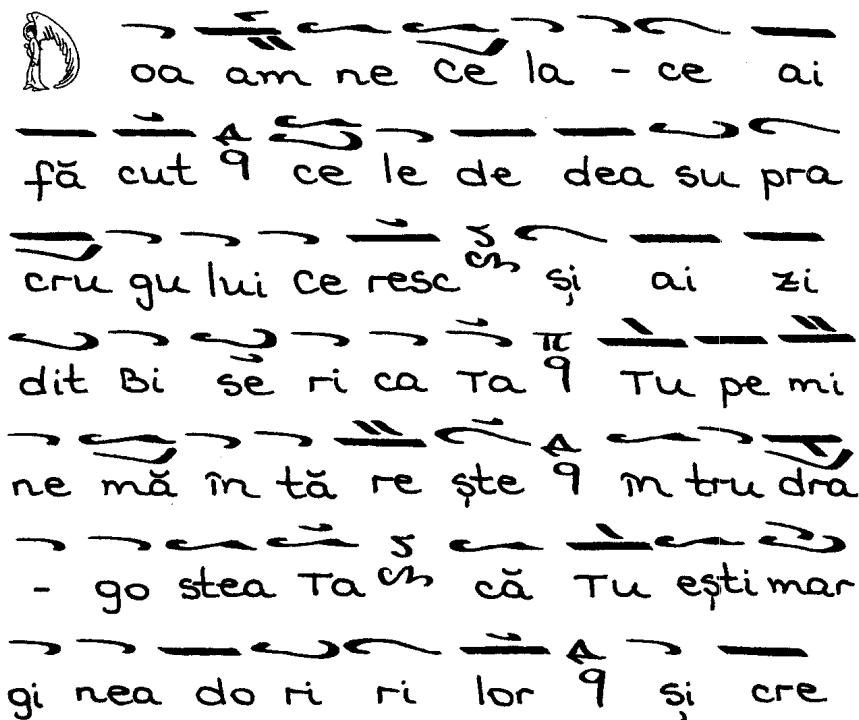 Doa am ne ce la - ce ai
fă cut ce le de dea su pra
cru gu lui ce resc și ai zi
dit Bi se ri ca Ta Tu pe mi
ne mă în tă re ște în tru dra
- go stea Ta că Tu ești mar
gi nea do ri ri lor și cre